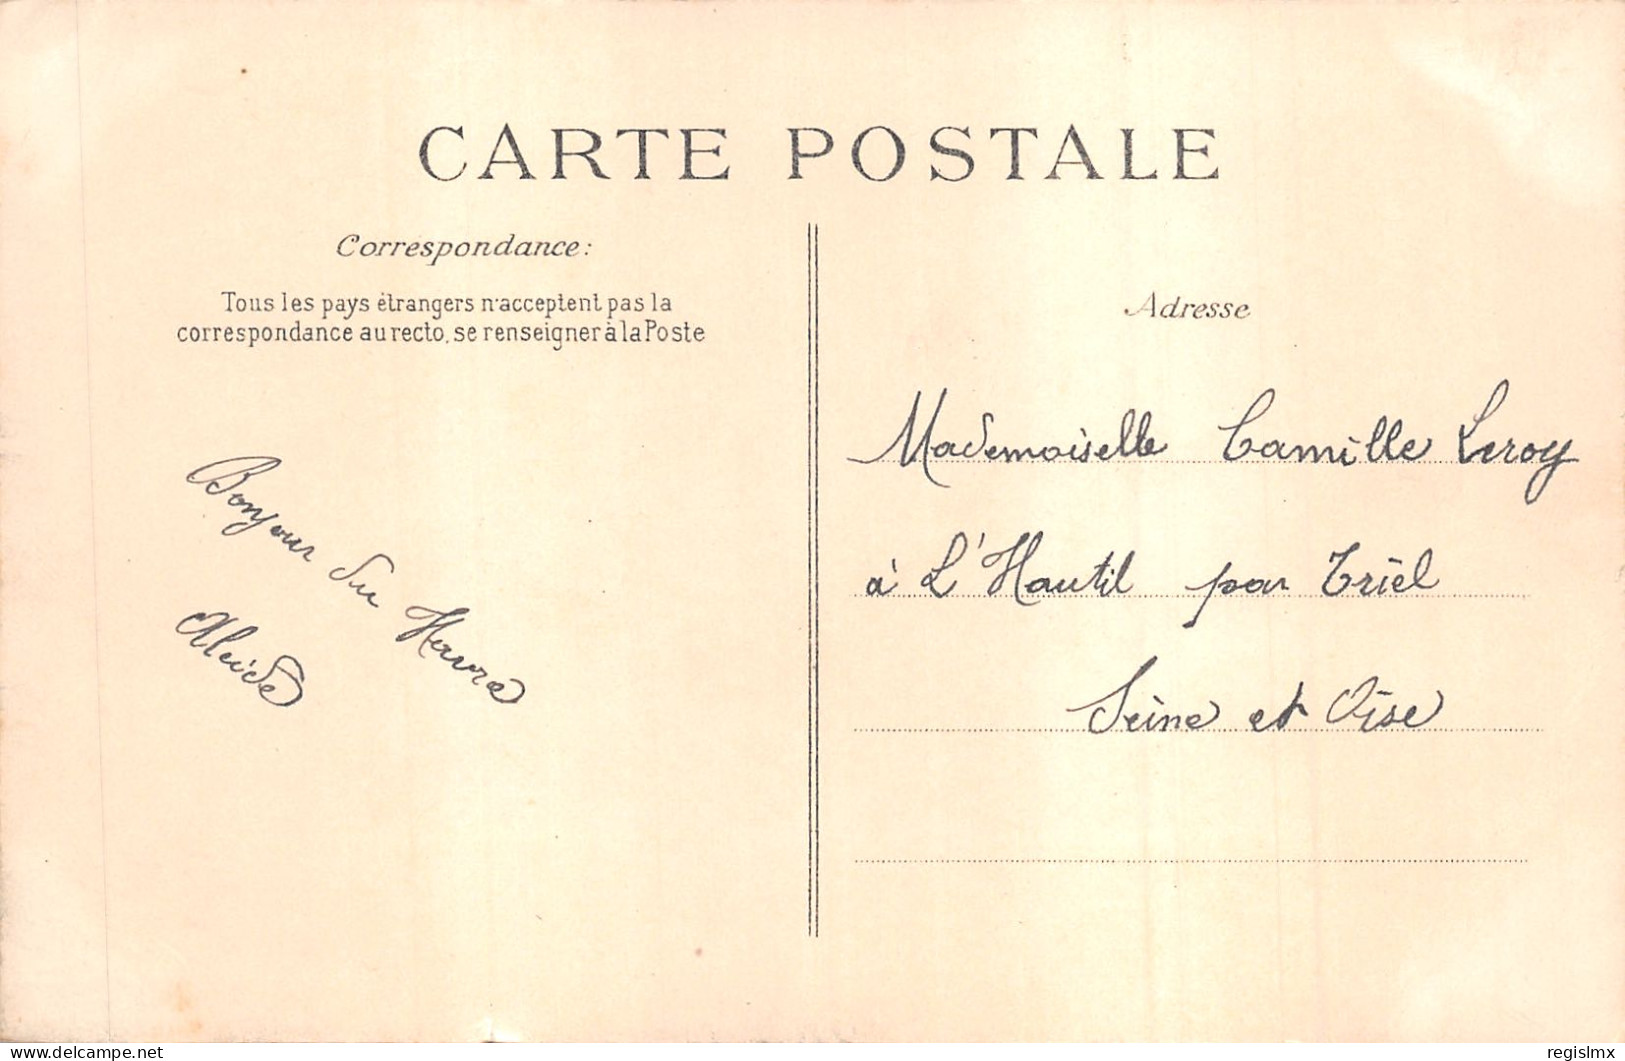 CARTE POSTALE
Correspondance:
Tous les pays étrangers n'acceptent pas la
correspondance au recto, se renseigner à la Poste
Bonjour du Havre
Alcide
Adresse
Mademoiselle Camille Leroy
à L'Hautil par Triel
Seine et Oise
www.delcampe.net
regislmx